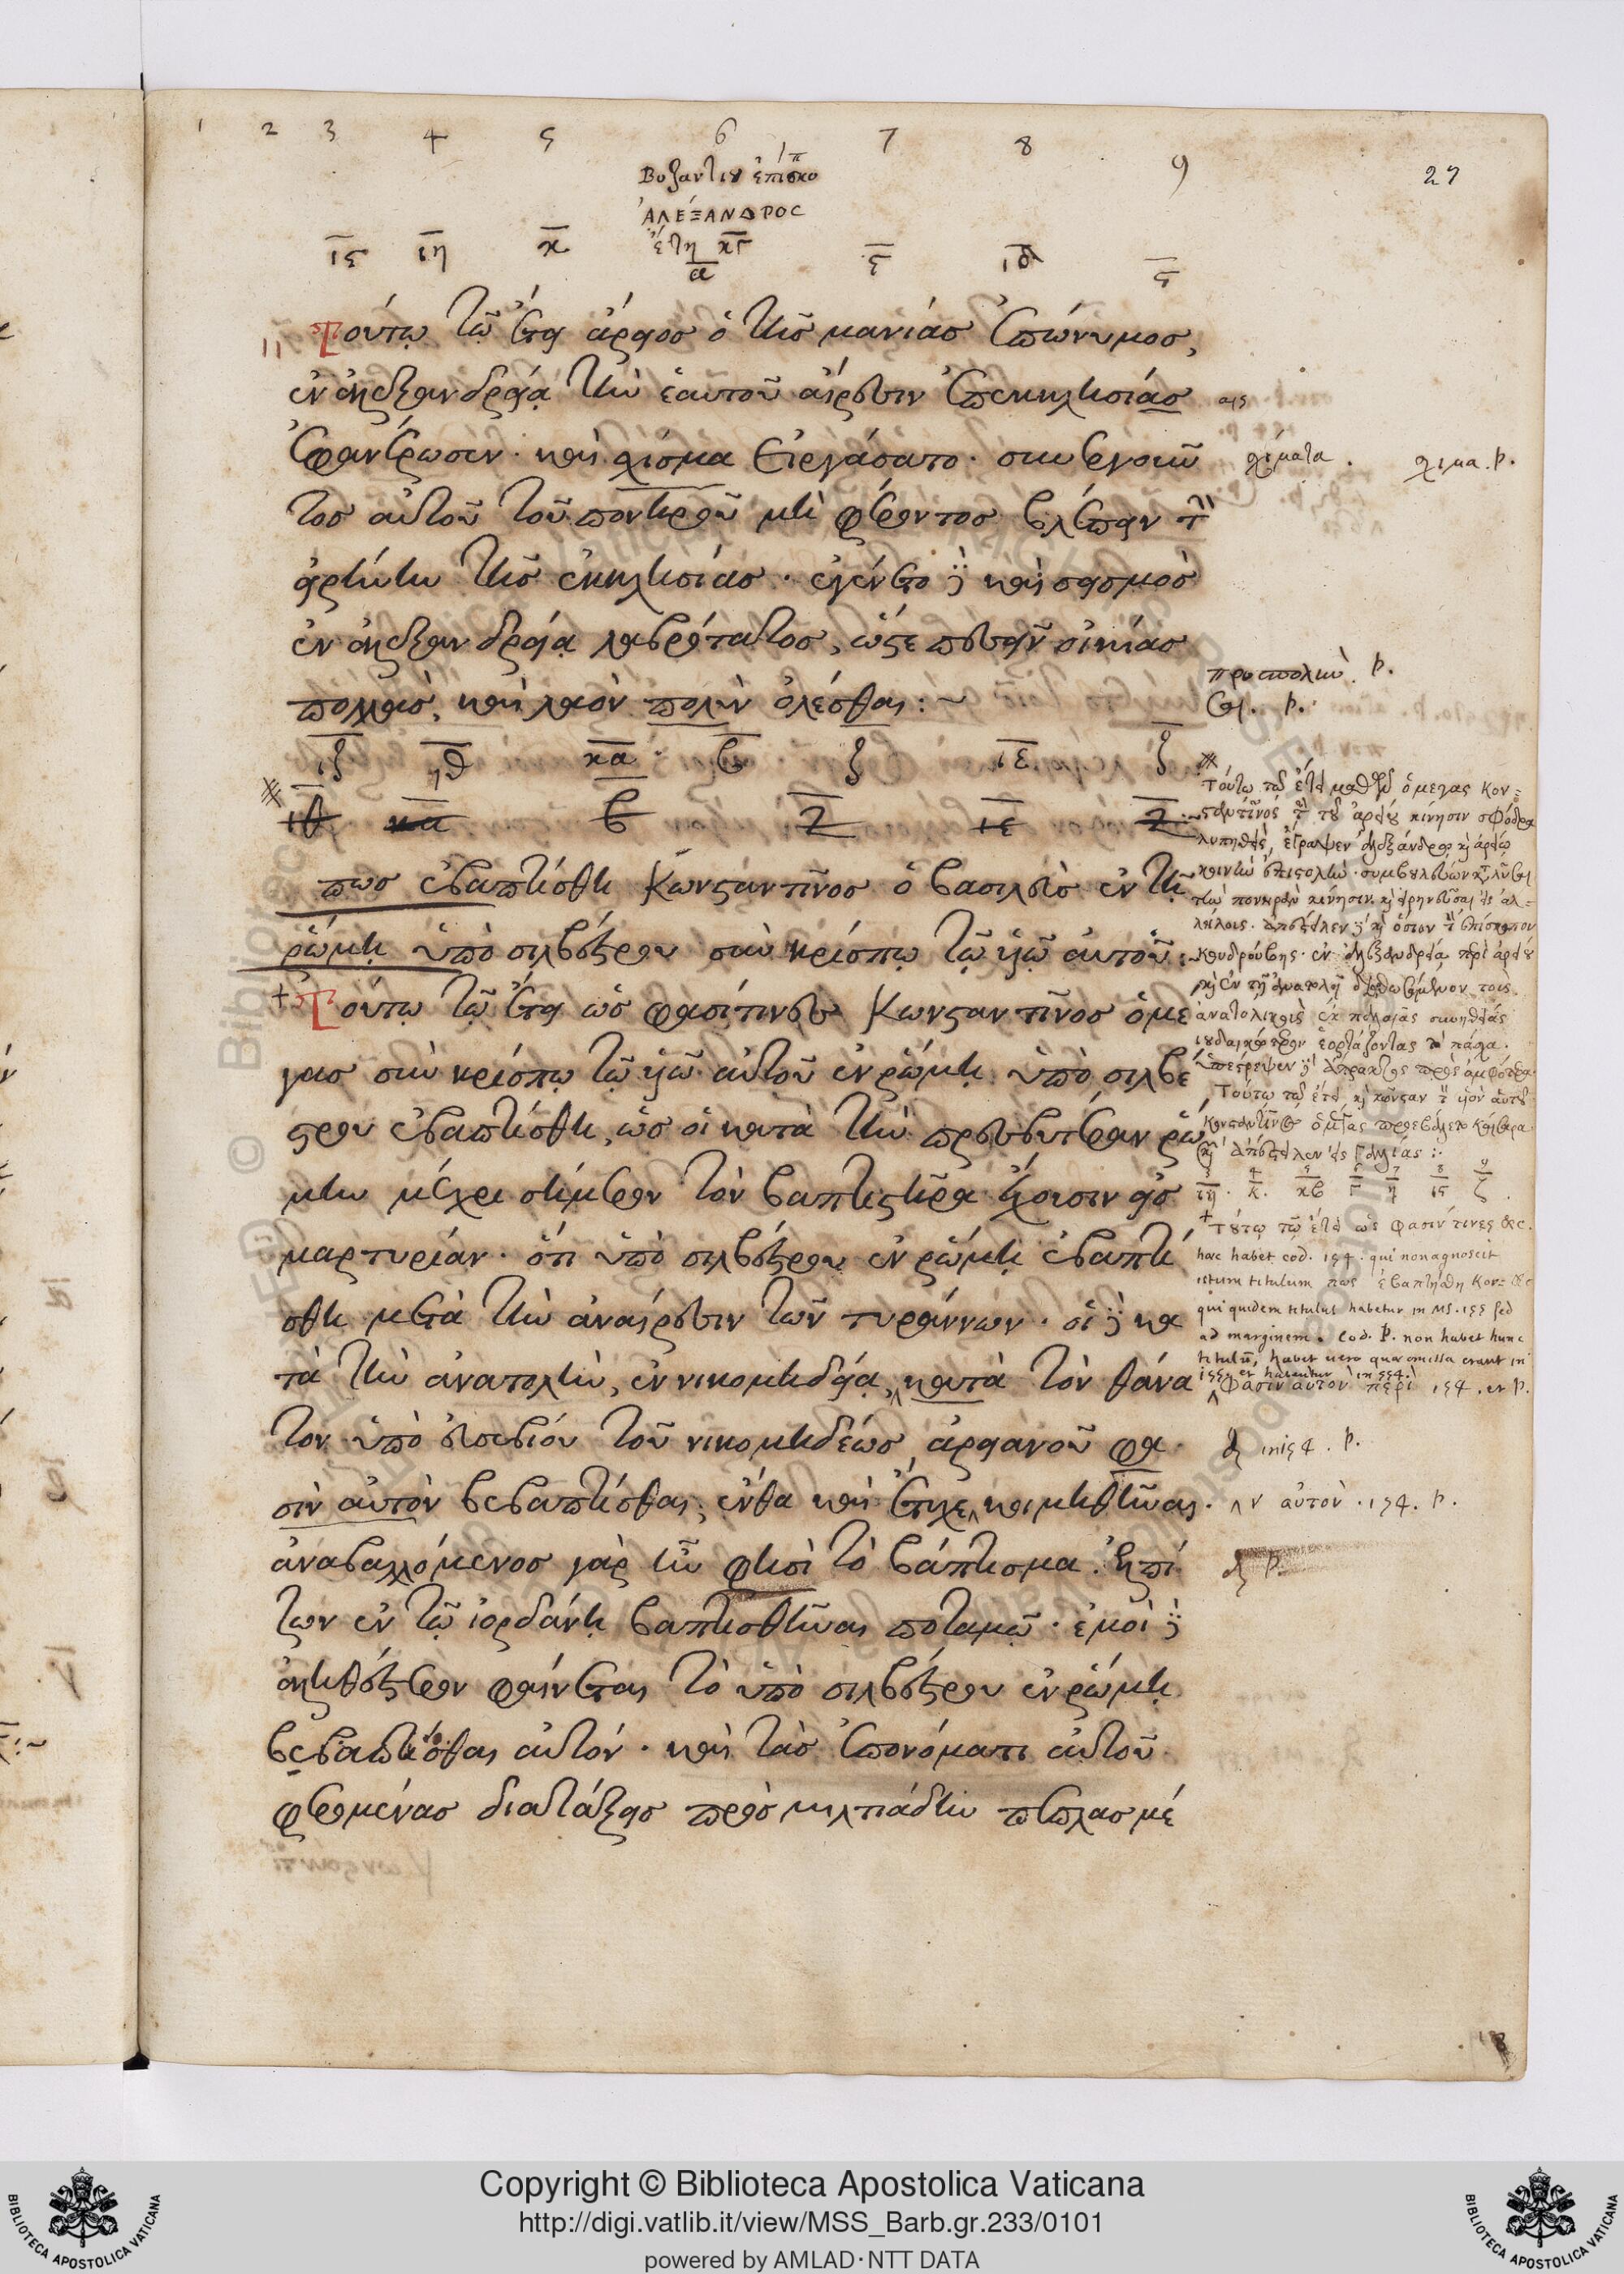 1 2 3 4 5 6 7 8 9
27
Βυζαντίου ἐπίσκο
ἈΛΕΞΑΝΔΡΟC
ις ιη κ ἔτη κγ ε ιδ ς
α
11 Τούτῳ τῷ ἔτει ἄρειος ὁ τῆς μανίας ἐπώνυμος,
ἐν ἀλεξανδρείᾳ τὴν ἑαυτοῦ αἵρεσιν ἐπεκκλησίας
ἐφανέρωσεν · καὶ χίσμα εἰργάσατο · συνεργοῦν
τος αὐτοῦ τοῦ πονηροῦ μὴ φέροντος βλέπειν τὴν
εἰρήνην τῆς ἐκκλησίας · ἐγένετο δὲ καὶ σεισμὸς
ἐν ἀλεξανδρείᾳ λαβρότατος, ὥστε πεσεῖν οἰκίας
πολλὰς, καὶ λαὸν πολὺν ὀλέσθαι : ~
ιζ ιθ κα β ζ ιε ζ
ιθ κα β ζ ιε ζ
πῶς ἐβαπτίσθη Κωνσταντῖνος ὁ βασιλεὺς ἐν τῇ
ῥώμῃ ὑπὸ σιλβέστρου σὺν κρίσπῳ τῷ υἱῷ αὐτοῦ :
+ Τούτῳ τῷ ἔτει ὥς φασί τινες Κωνσταντῖνος ὁ μέ
γας σὺν κρίσπῳ τῷ υἱῷ αὐτοῦ ἐν ῥώμῃ ὑπὸ σιλβέ
στρου ἐβαπτίσθη, ὡς οἱ κατὰ τὴν πρεσβυτέραν ῥώ
μην μέχρι σήμερον τὸν βαπτιστῆρα ἔχουσιν εἰς
μαρτυρίαν · ὅτι ὑπὸ σιλβέστρου ἐν ῥώμῃ ἐβαπτί
σθη μετὰ τὴν ἀναίρεσιν τῶν τυράννων · οἱ δὲ κα
τὰ τὴν ἀνατολὴν, ἐν νικομηδείᾳ, κατὰ τὸν θάνα
τον ὑπὸ εὐσεβίου τοῦ νικομηδέως ἀρειανοῦ φα
σὶν αὐτὸν βεβαπτίσθαι, ἔνθα καὶ ἔτυχε κοιμηθῆναι ·
ἀναβαλλόμενος γὰρ ἦν φησὶ τὸ βάπτισμα. ἐλπί
ζων ἐν τῷ ἰορδάνῃ βαπτισθῆναι ποταμῷ · ἐμοὶ δὲ
ἀληθέστερον φαίνεται τὸ ὑπὸ σιλβέστρου ἐν ῥώμῃ
βεβαπτίσθαι αὐτόν · καὶ τὰς ἐπονόματι αὐτοῦ
φερομένας διατάξεις πρὸς μιλτιάδην πεπλασμέ
αις
χίματα . χιμα. P.
προπολὺν. P.
P.
Τούτῳ τῷ ἔτει μαθὼν ὁ μέγας Κον=
σταντῖνος τὴν τοῦ ἀρείου κίνησιν σφόδρα
λυπηθεὶς, ἔγραψεν ἀλεξάνδρῳ καὶ ἀρείῳ
κοινὴν ἐπιστολὴν · συμβουλεύων
τὴν πονηρὰν κίνησιν καὶ εἰρηνεῦσαι ἐν ἀλ=
λήλοις. ἀπέστειλεν δὲ καὶ ὅσιον τὸν ἐπίσκοπον
κουδρούβης · ἐν ἀλεξανδρείᾳ περὶ ἀρείου
καὶ ἐν τῇ ἀνατολῇ διορθωσόμενον τοὺς
ἀνατολικοὺς ἐκ παλαιᾶς συνηθείας
ἰουδαικώτερον ἑορτάζοντας τὸ πάσχα.
ὑπέστρεψεν δὲ ἄπρακτος πρὸς ἀμφότερα.
Τούτῳ τῷ ἔτει καὶ τὸν υἱὸν αὐτοῦ
Κωνσταντῖνος ὁ μέγας προεβάλετο καίσαρα
καὶ ἀπέστειλεν εἰς Γαλλίας :·
3 4 5 6 7 8 9
ιη · κ. κβ γ η ις ζ
+ Τούτῳ τῷ ἔτει ὥς φασίν τινες &c.
hæc habet cod. 154. qui non agnoscit
istum titulum πῶς ἐβαπτίσθη Κον= &c
qui quidem titulus habetur in MS. 155 sed
ad marginem. Cod. P. non habet hunc
titulũ, habet vero quæ omissa erant in
155, et habentur in 154.
Φασὶν αὐτὸν περὶ 154. et P.
in 154. P.
ν αὐτὸν · 154. P.
P.
18
Copyright © Biblioteca Apostolica Vaticana
http://digi.vatlib.it/view/MSS_Barb.gr.233/0101
powered by AMLAD · NTT DATA
BIBLIOTECA APOSTOLICA VATICANA
BIBLIOTECA APOSTOLICA VATICANA